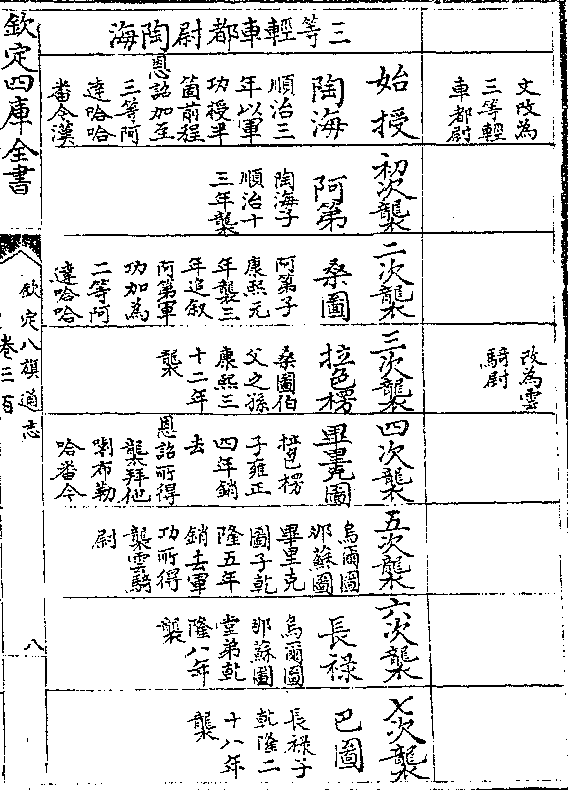 文改為
三等輕
車都尉
改為雲
騎尉
三等輕車都尉陶海
始授
陶海
順治三
年以軍
功授半
箇前程
恩詔加至
三等阿
達哈哈
番今漢
初次襲
阿第
陶海子
順治十
三年襲
二次襲
桑圖
阿第子
康熙元
年襲三
年追叙
阿第軍
功加為
二等阿
達哈哈
三次襲
拉色楞
桑圖伯
父之孫
康熙三
十二年
襲
四次襲
畢里克圖
拉色楞
子雍正
四年銷
去
恩詔所得
襲拜他
喇布勒
哈番今
五次襲
烏爾圖
那蘇圖
畢里克
圖子乾
隆五年
銷去軍
功所得
襲雲騎
尉
六次襲
長祿
烏爾圖
那蘇圖
堂弟乾
隆八年
襲
七次襲
巴圖
長祿子
乾隆二
十八年
襲
欽定四庫全書
欽定八旗通志
卷三百
八